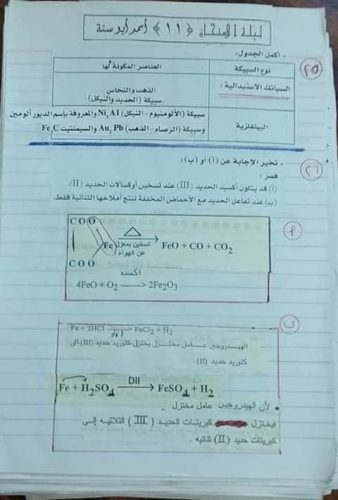 ليلة الامتحان (١١) أحمد أبو سنة
- أكمل الجدول:
٢٥
نوع السبيكة
العناصر المكونة لها
السبائك الاستبدالية :
الذهب والنحاس
سبيكة (الحديد والنيكل)
البينفلزية
سبيكة (الألومنيوم - النيكل) Ni₃Al والمعروفة بإسم الديور ألومين
وسبيكة (الرصاص - الذهب) Au₂Pb والسيمنتيت Fe₃C
٢٦
- تخير الاجابة عن (أ) أو (ب):
فسر :
(أ) قد يتكون أكسيد الحديد (III) عند تسخين أوكسالات الحديد (II).
(ب) عند تفاعل الحديد مع الأحماض المخففة تنتج أملاحها الثنائية فقط.
P
COO
Fe تسخين بمعزل عن الهواء △ → FeO + CO + CO₂
COO
أكسده
4FeO + O₂ → 2Fe₂O₃
ب
Fe + 2HCl → FeCl₂ + H₂
الهيدروجين عامل مختزل يختزل كلوريد حديد (III) الى
كلوريد حديد (II).
Fe + H₂SO₄ Dil → FeSO₄ + H₂
- لأن الهيدروجين عامل مختزل
فيختزل كبريتات الحديد (III) الثلاثيه إلى
كبريتات حديد (II) ثنائيه .